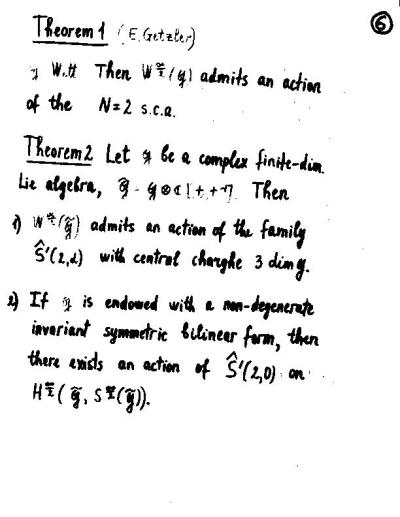 ⑥
Theorem 1 (E. Getzler)
Then W^{∞/2}(g) admits an action
of the N=2 s.c.a.
Theorem 2 Let g be a complex finite-dim.
Lie algebra, g̃ = g ⊗ ℂ[t, t⁻¹]. Then
1) W^{∞/2}(g̃) admits an action of the family
Ŝ'(2,α) with central charghe 3 dim g.
2) If g is endowed with a non-degenerate
invariant symmetric bilinear form, then
there exists an action of Ŝ'(2,0) on
H^{∞/2}(g̃, S^{∞/2}(g̃)).